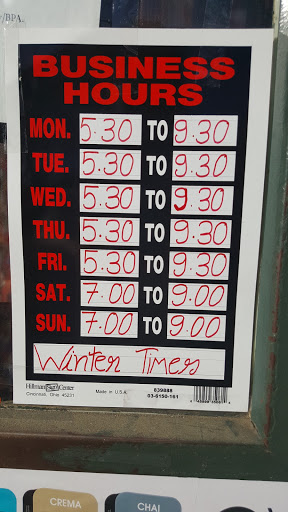 /BPA.
BUSINESS
HOURS
MON. 5.30 TO 9.30
TUE. 5.30 TO 9.30
WED. 5.30 TO 9.30
THU. 5.30 TO 9.30
FRI. 5.30 TO 9.30
SAT. 7.00 TO 9.00
SUN. 7.00 TO 9.00
Winter Times
Hillman Center Made in U.S.A. 839888
Cincinnati, Ohio 45231 03-6150-161
CREMA CHAI